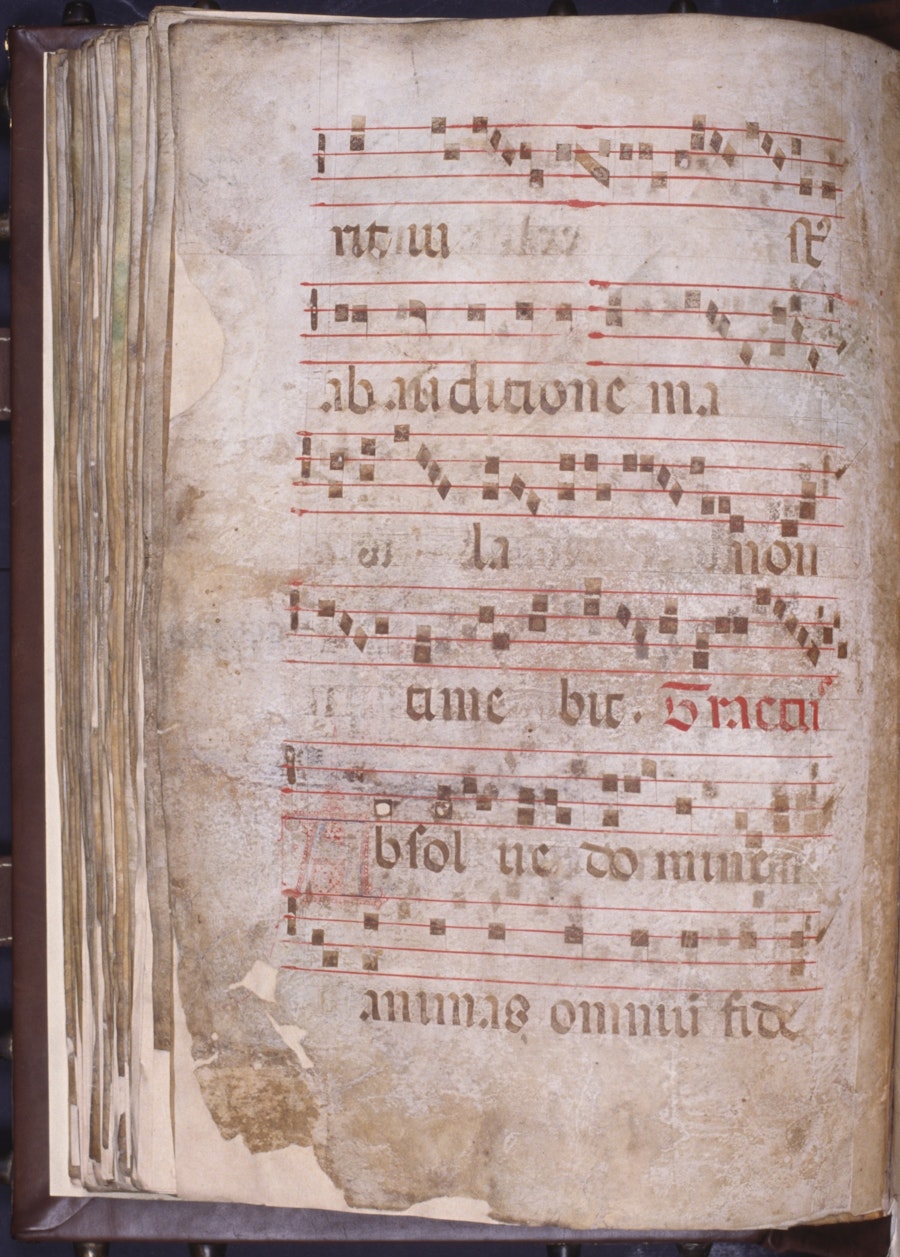 rit iu st᷒
ab auditione ma
la non
time bit. Tractu᷒
Absol ue do mine
animas omniū fide